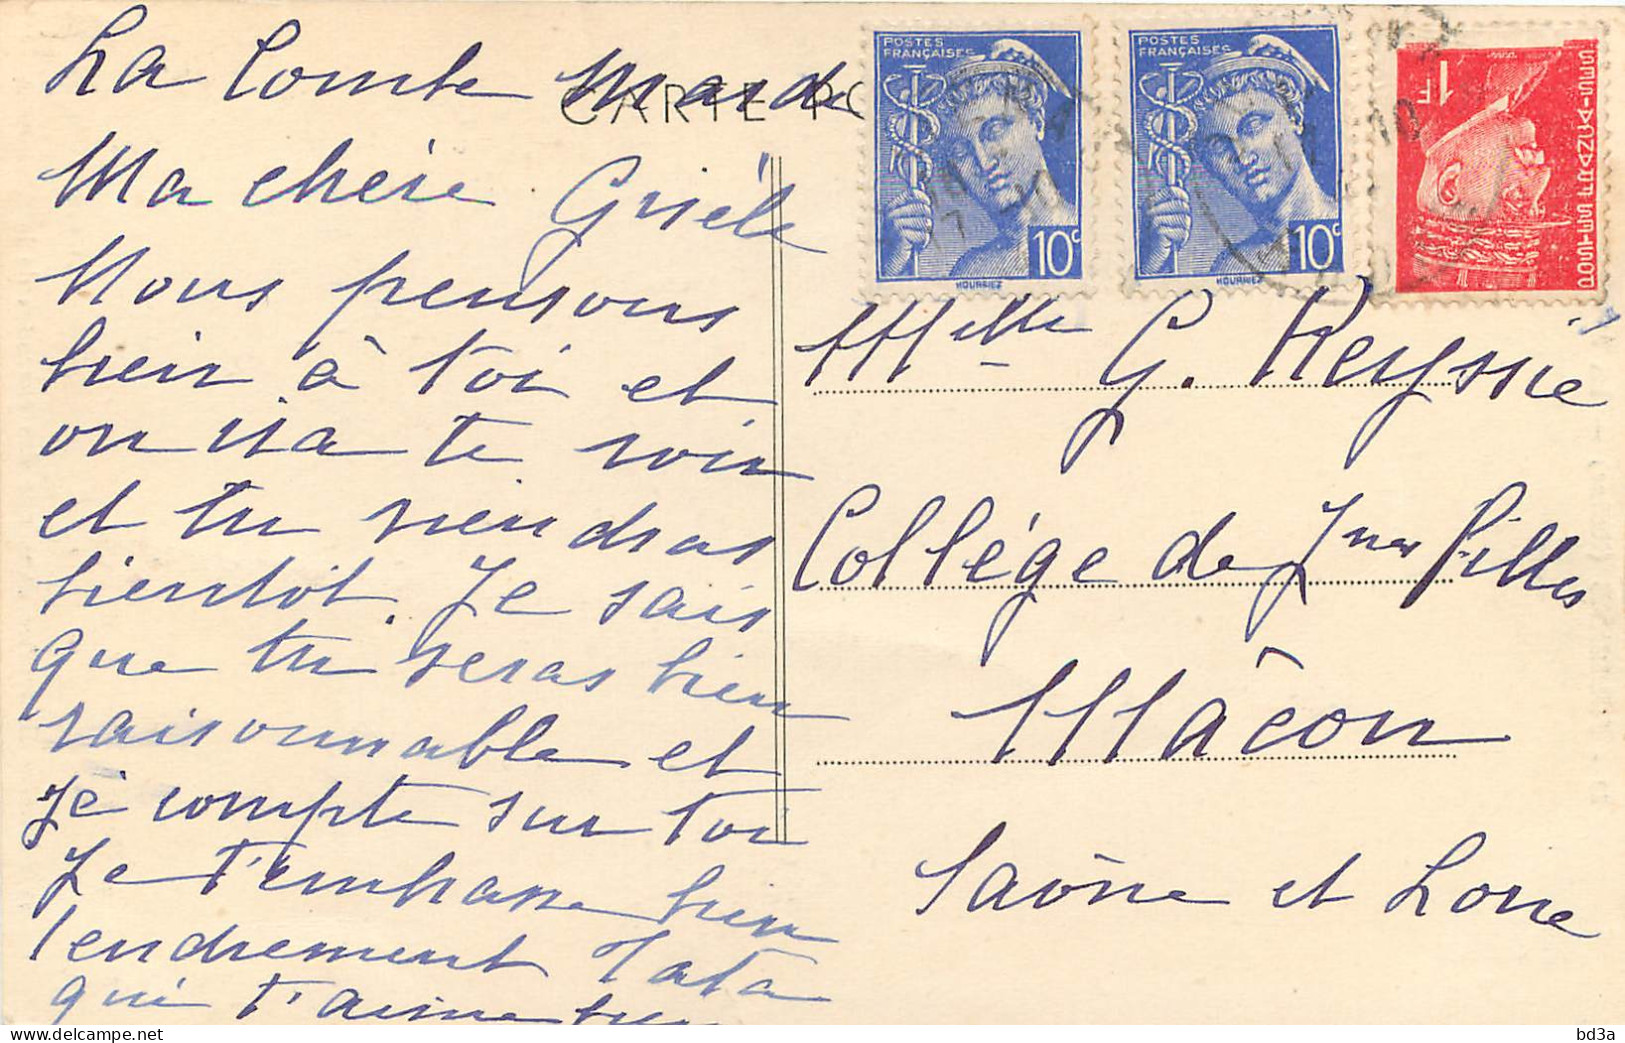 La Combe Mardi
CARTE PO
Ma chère Gisèle
Nous pensons
bien à toi et
on ira te voir
et tu viendras
bientôt. Je sais
que tu seras bien
raisonnable et
je compte sur toi
Je t'embrasse bien
tendrement Tata
qui t'aime bien
POSTES
FRANÇAISES
10c
HOURRIEZ
POSTES
FRANÇAISES
10c
HOURRIEZ
POSTES FRANÇAISES
1F
Melle G. Reyssié
Collége de Jnes filles
Mâcon
Saône et Loire
bd3a